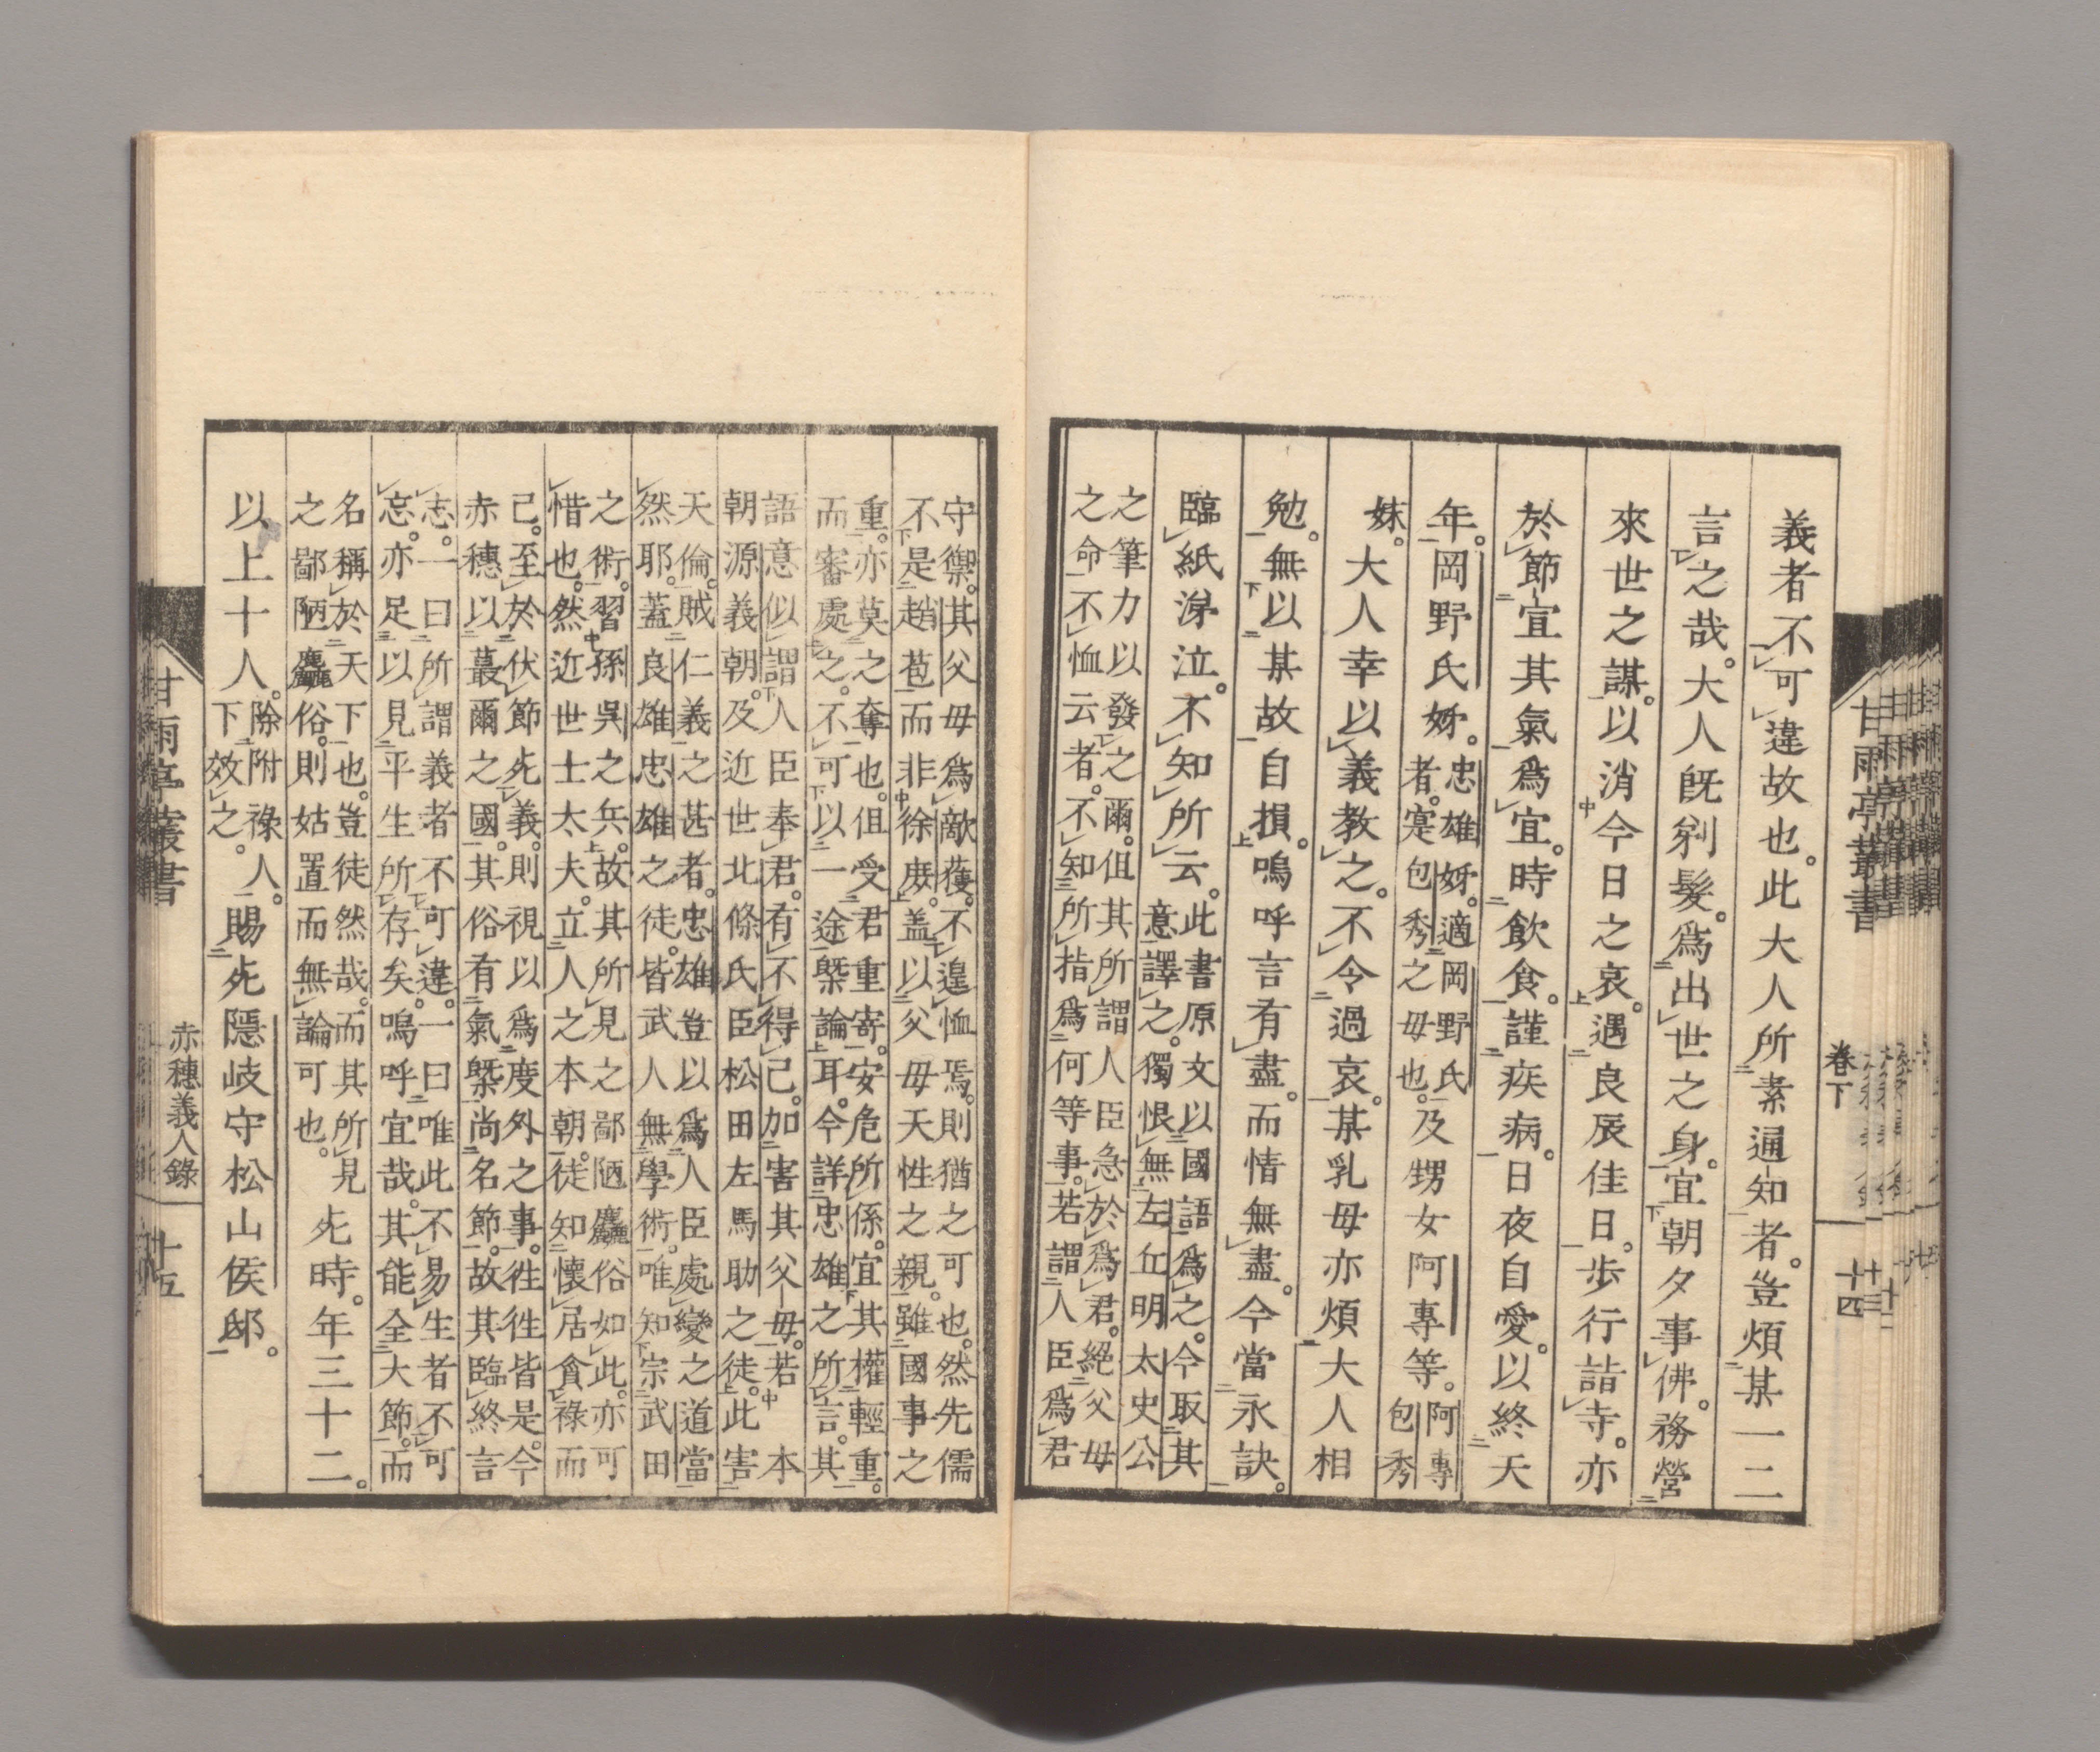 甘雨亭叢書
卷下
十四
義者不可違故也。此大人所素通知者。豈煩某一二
言之哉。大人既剃髮。爲出世之身。宜朝夕事佛。務營
來世之謀。以消今日之哀。遇良辰佳日。步行詣寺。亦
於節宜其氣爲宜。時飲食。謹疾病。日夜自愛。以終天
年。岡野氏姊。忠雄姊。適岡野氏者。寔包秀之母也。及甥女阿專等。阿專包秀
妹。大人幸以義教之。不令過哀。某乳母亦煩大人相
勉。無以某故自損。嗚呼言有盡。而情無盡。今當永訣。
臨紙涕泣。不知所云。此書原文以國語爲之。今取其
意譯之。獨恨無左丘明太史公
之筆力以發之爾。但其所謂人臣急於爲君。絕父母
之命不恤云者。不知所指爲何等事。若謂人臣爲君
守禦。其父母爲敵獲。不遑恤焉。則猶之可也。然先儒
不是趙苞而非徐庶。盖以父母天性之親。雖國事之
重。亦莫之奪也。但受君重寄。安危所係。宜其權輕重。
而審處之。不可以一途槩論耳。今詳忠雄之所言。其
語意似謂人臣奉君。有不得已。加害其父母。若 本
朝源義朝。及近世北條氏臣松田左馬助之徒。此害
天倫。賊仁義之甚者。忠雄豈以爲人臣處變之道當
然耶。蓋良雄忠雄之徒。皆武人無學術。唯知宗武田
之術。習孫吳之兵。故其所見之鄙陋麤俗如此。亦可
惜也。然近世士太夫。立人之本朝。徒知懷居貪祿而
已。至於伏節死義。則視以爲度外之事。徃徃皆是。今
赤穗以蕞爾之國。其俗有氣槩。尚名節。故其臨終言
志。一曰所謂義者不可違。一曰唯此不易生者不可
忘。亦足以見平生所存矣。嗚呼宜哉。其能全大節。而
名稱於天下也。豈徒然哉。而其所見
之鄙陋麤俗。則姑置而無論可也。死時。年三十二。
以上十人。除附祿人。下效之。賜死隱岐守松山侯邸。
甘雨亭叢書
赤穗義人錄
十五